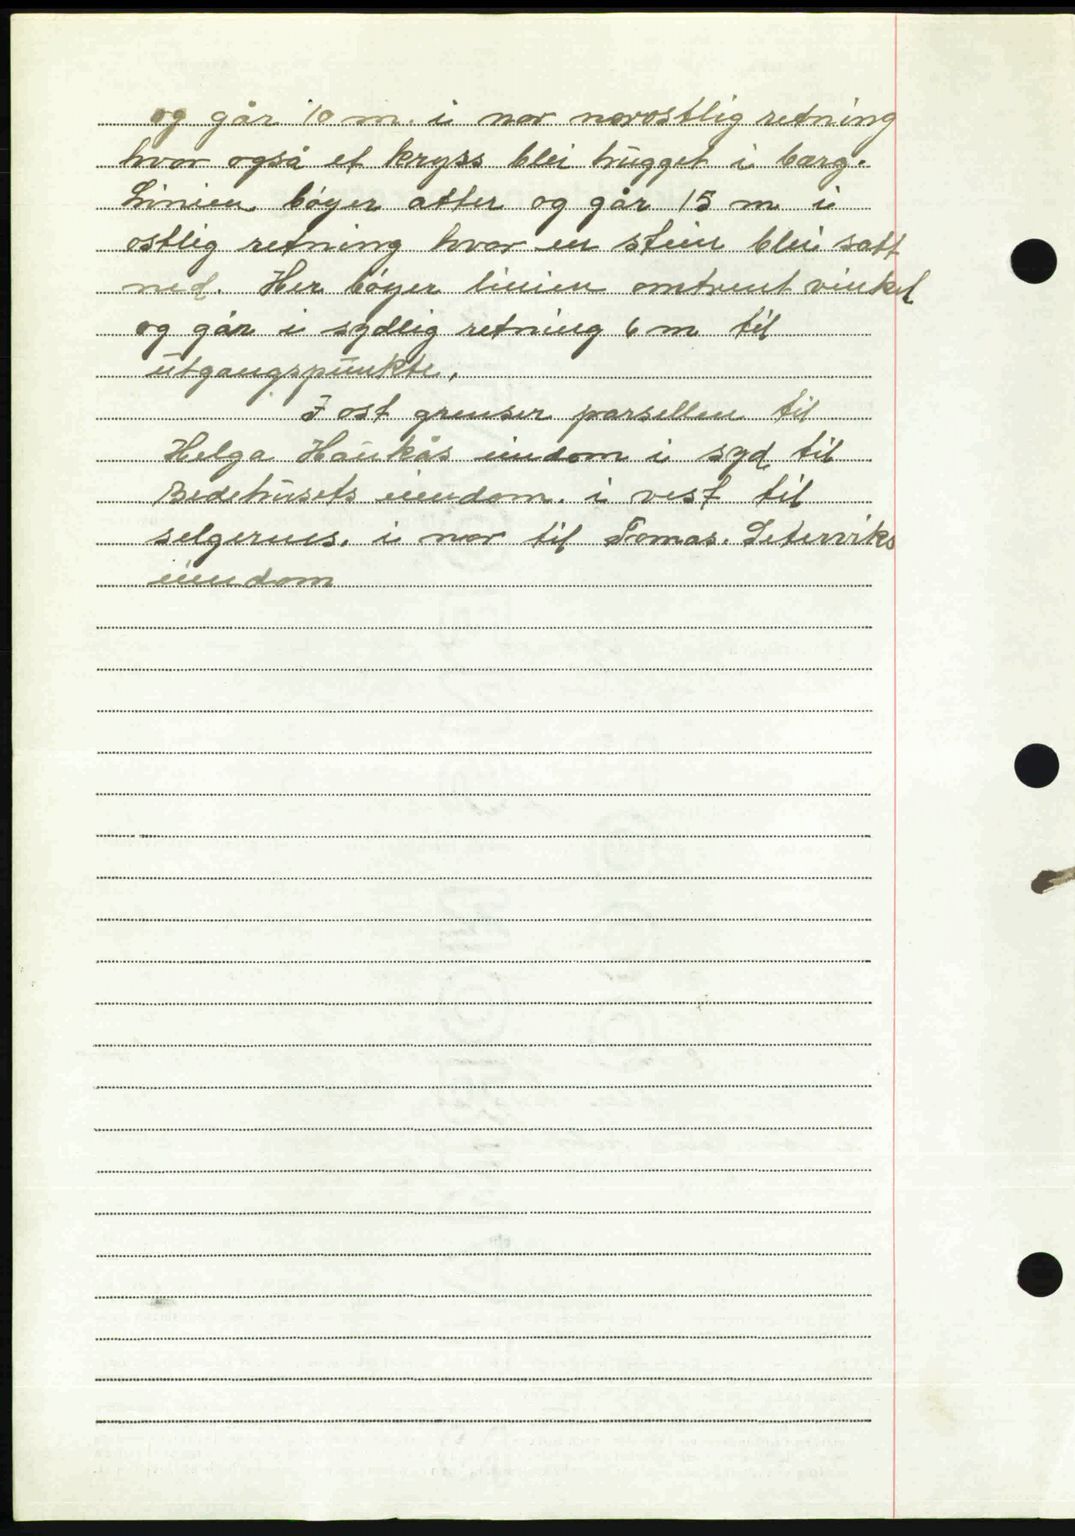 og går 10 m. i nor norostlig retning
hvor også et kryss blei hugget i berg.
Linien bøyer atter og går 15 m i
ostlig retning hvor en stein blei satt
ned. Her bøyer linien omtrent vinkel
og går i sydlig retning 6 m til
utgangspunkte.
I ost grenser parsellen til
Helga Haukås eiendom i syd til
Bedehusets eiendom. i vest til
selgerens. i nor til Tomas. Seterviks
eiendom